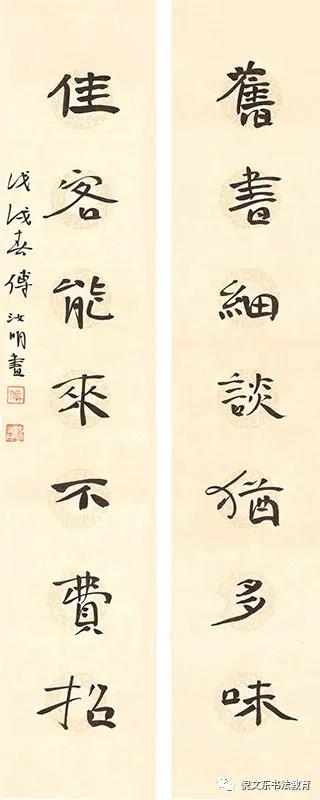 舊書細談猶多味
佳客能來不費招
戊戌春傅汝明書
倪文东书法教育